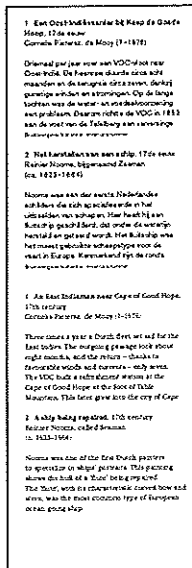 1 Een Oost-Indiëvaarder bij Kaap de Goede
Hoop, 17de eeuw
Cornelis Pietersz. de Mooy (?-1676)
Driemaal per jaar voer een VOC-vloot naar
Oost-Indië. De heenreis duurde circa acht
maanden en de terugreis circa zeven, dankzij
gunstige winden en stromingen. Op de lange
tochten was de water- en voedselvoorziening
een probleem. Daarom richtte de VOC in 1652
aan de voet van de Tafelberg een
2 Het herstellen aan een schip, 17de eeuw
Reinier Nooms, bijgenaamd Zeeman
(ca. 1623-1664)
Nooms was een der eerste Nederlandse
schilders die zich specialiseerde in het
uitbeelden van schepen. Hier heeft hij een
fluitschip geschilderd, dat onder de waterlijn
hersteld en geteerd wordt. Het fluitschip was
het meest gebruikte scheepstype voor de
vaart in Europa. Kenmerkend zijn de ronde
1 An East Indiaman near Cape of Good Hope,
17th century
Cornelis Pietersz. de Mooy (?-1676)
Three times a year a Dutch fleet set sail for the
East Indies. The outgoing passage took about
eight months, and the return – thanks to
favourable winds and currents – only seven.
The VOC built a refreshment station at the
Cape of Good Hope at the foot of Table
Mountain. This later grew into the city of Cape
2 A ship being repaired, 17th century
Reinier Nooms, called Seaman
(ca. 1623-1664)
Nooms was one of the first Dutch painters
to specialize in ships' portraits. This painting
shows the hull of a 'fluit' being repaired.
The 'fluit', with its characteristic curved bow and
stern, was the most common type of European
ocean going ship.